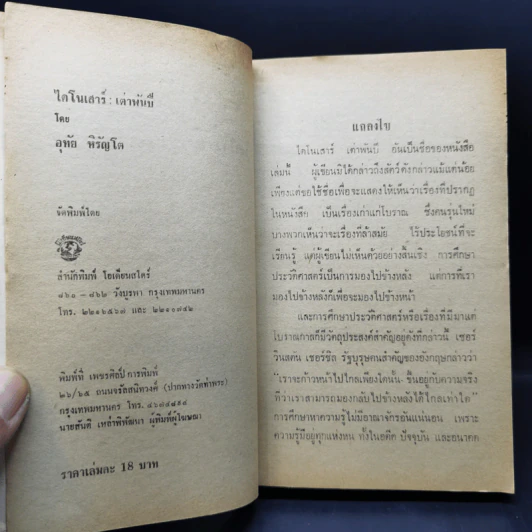 ไดโนเสาร์ : เต่าพันปี
โดย
อุทัย หิรัญโต
จัดพิมพ์โดย
สำนักพิมพ์ โอเดียนสโตร์
๘๖๑ – ๘๖๒ วังบูรพา กรุงเทพมหานคร
โทร. ๒๒๑๖๕๖๗ และ ๒๒๑๐๗๔๒
พิมพ์ที่ เพชรศิลป์การพิมพ์
๒๖/๖๕ ถนนจรัลสนิทวงศ์ (ปากทางวัดท่าพระ)
กรุงเทพมหานคร โทร.
นายสันติ เหล่าพิพัฒนา ผู้พิมพ์ผู้โฆษณา
ราคาเล่มละ 18 บาท
แถลงไข
ไดโนเสาร์ เต่าพันปี อันเป็นชื่อของหนังสือ
เล่มนี้ ผู้เขียนมิได้กล่าวถึงสัตว์ดังกล่าวแม้แต่น้อย
เพียงแต่ขอใช้ชื่อเพื่อจะแสดงให้เห็นว่าเรื่องที่ปรากฏ
ในหนังสือ เป็นเรื่องเก่าแก่โบราณ ซึ่งคนรุ่นใหม่
บางพวกเห็นว่าจะเรื่องที่ล้าสมัย ไร้ประโยชน์ที่จะ
เรียนรู้ แต่ผู้เขียนไม่เห็นด้วยอย่างสิ้นเชิง การศึกษา
ประวัติศาสตร์เป็นการมองไปข้างหลัง แต่การที่เรา
มองไปข้างหลังก็เพื่อจะมองไปข้างหน้า
และการศึกษาประวัติศาสตร์หรือเรื่องที่มีมาแต่
โบราณกาลก็มีวัตถุประสงค์สำคัญอยู่ดังที่กล่าวนี้ เซอร์
วินสตัน เชอร์ชิล รัฐบุรุษคนสำคัญของอังกฤษกล่าวว่า
"เราจะก้าวหน้าไปไกลเพียงใดนั้น ขึ้นอยู่กับความจริง
ที่ว่าเราสามารถมองกลับไปข้างหลังได้ไกลเท่าใด"
การศึกษาหาความรู้ไม่มีอาณาจักรอันแน่นอน เพราะ
ความรู้มีอยู่ทุกแห่งหน ทั้งในอดีต ปัจจุบัน และอนาคต